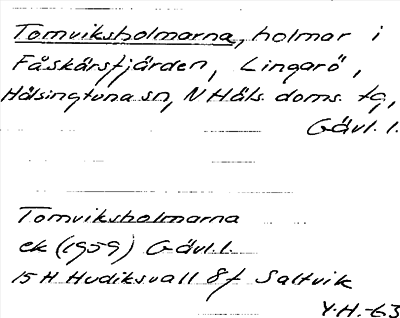 Tomviksholmarna, holmar i
Fåskärsfjärden, Lingarö,
Hälsingtuna sn, N Häls. doms. tg,
Gävl. l.
Tomviksholmarna
ek (1959) Gävl. l.
15 H Hudiksvall 8 f Saltvik
Y.H.-63